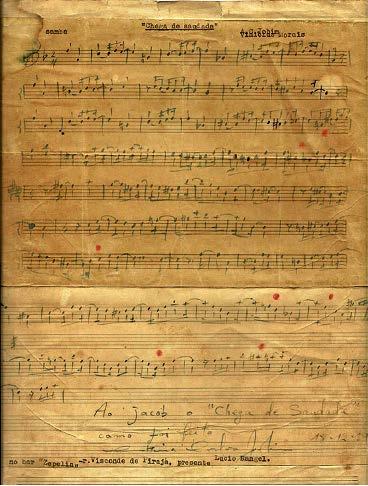 "Chega de saudade"
samba A.C.Jobim
Vinicius Morais
Ao Jacob o "Chega de Saudade"
como foi feito
18-12-59
no bar "Zepelin, -r.Visconde de Pirajá, presente Lucio Rangel.